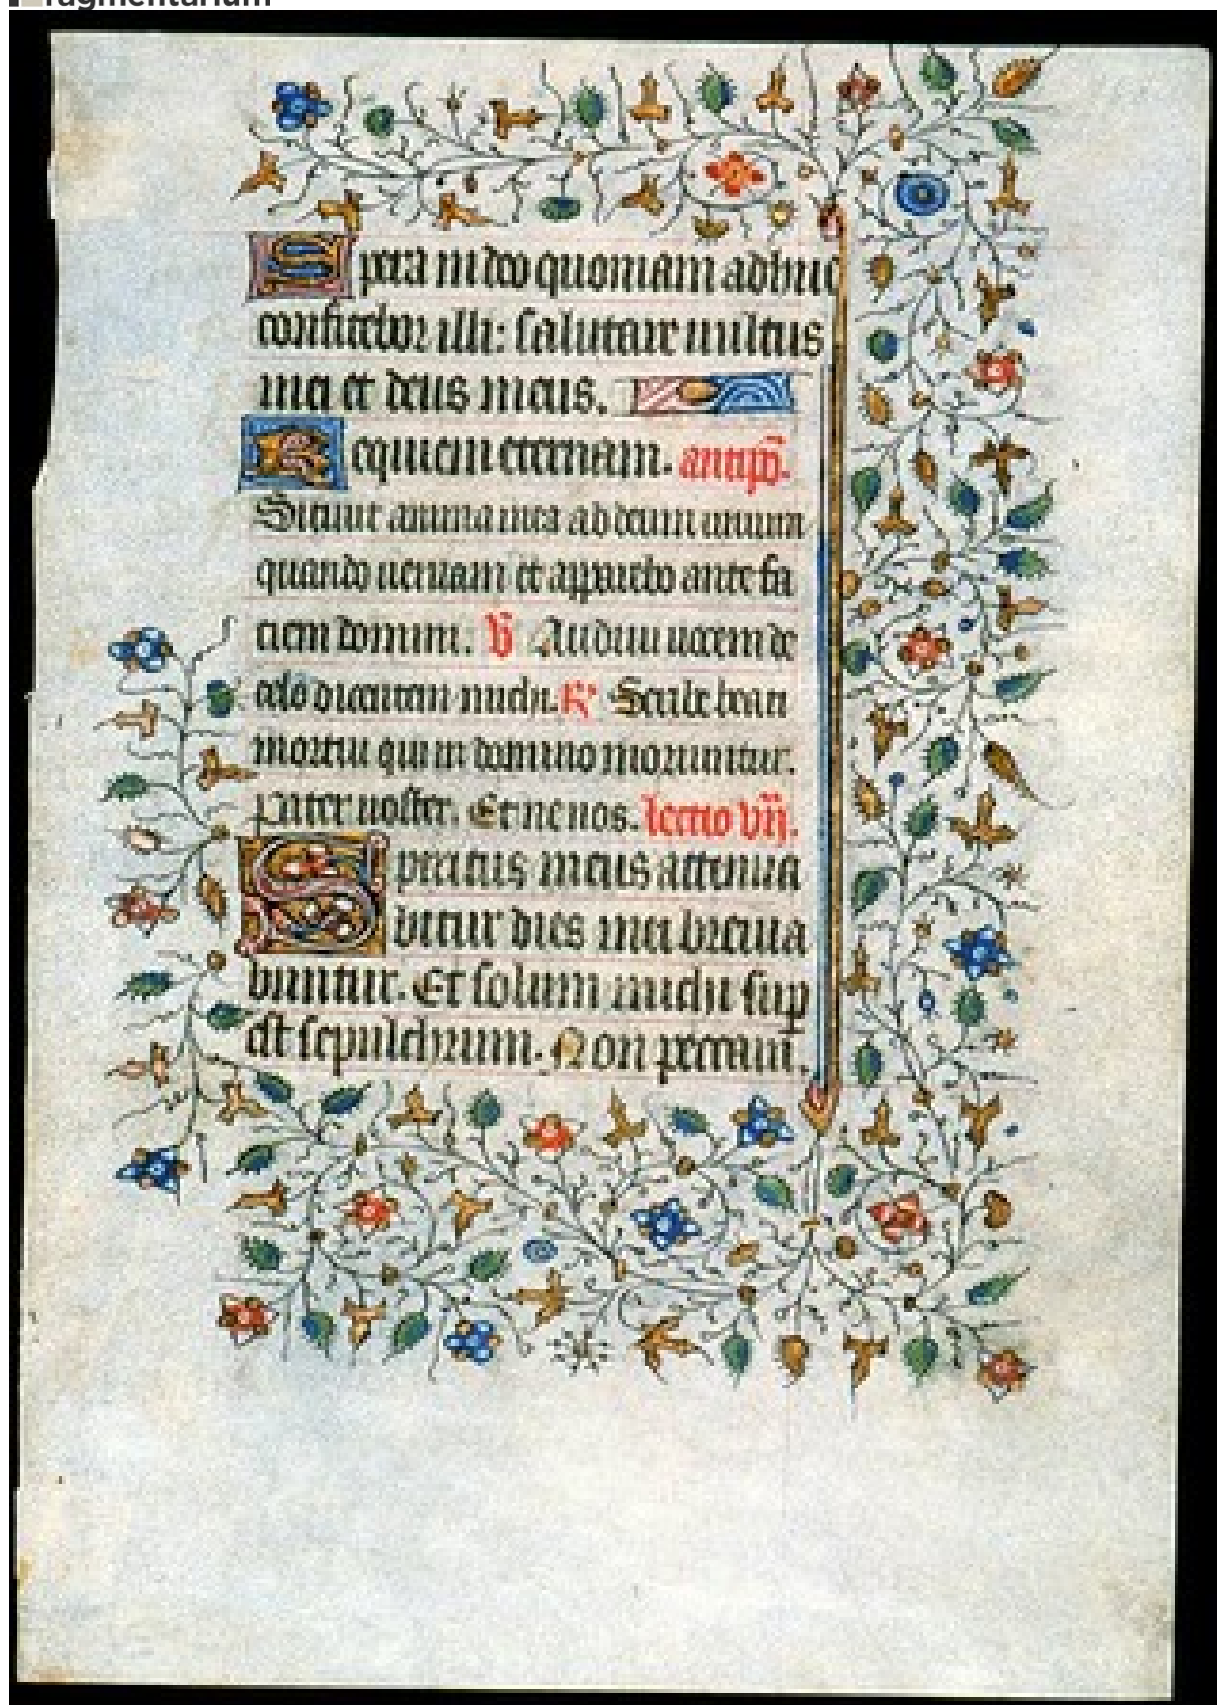 fragmentarium
Spera in deo quoniam adhuc
confitebor illi: salutare uultus
mei et deus meus.
Requiem eternam. antiph̄.
Sitiuit anima mea ad deum uiuum
quando ueniam et apparebo ante fa
ciem domini. V̄ Audiui uocem de
celo dicentem michi. R̄ Scribe beati
mortui qui in domino moriuntur.
Pater noster. Et ne nos. lectio vij.
Spiritus meus attenua
bitur dies mei breuia
buntur. Et solum michi sup
est sepulchrum. Non peccaui.